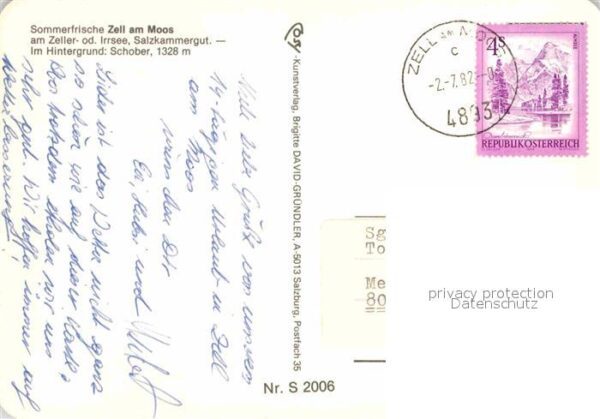 Sommerfrische Zell am Moos
am Zeller- od. Irrsee, Salzkammergut. —
Im Hintergrund: Schober, 1328 m
Viele liebe Grüße von unserem
14-tägigen Urlaub in Zell
am Moos
wünschen Dir
und
Leider ist das Wetter nicht ganz
so schön wie auf dieser Karte,
trotzdem wir uns
sehr gut. Wir hoffen immer auf
Kunstverlag Brigitte DAVID-GRÜNDLER, A-5013 Salzburg, Postfach 35
Nr. S 2006
ZELL AM MOOS
c
-2.-7.82
4893
4S
REPUBLIK ÖSTERREICH
Sg
To
Me
80
privacy protection
Datenschutz